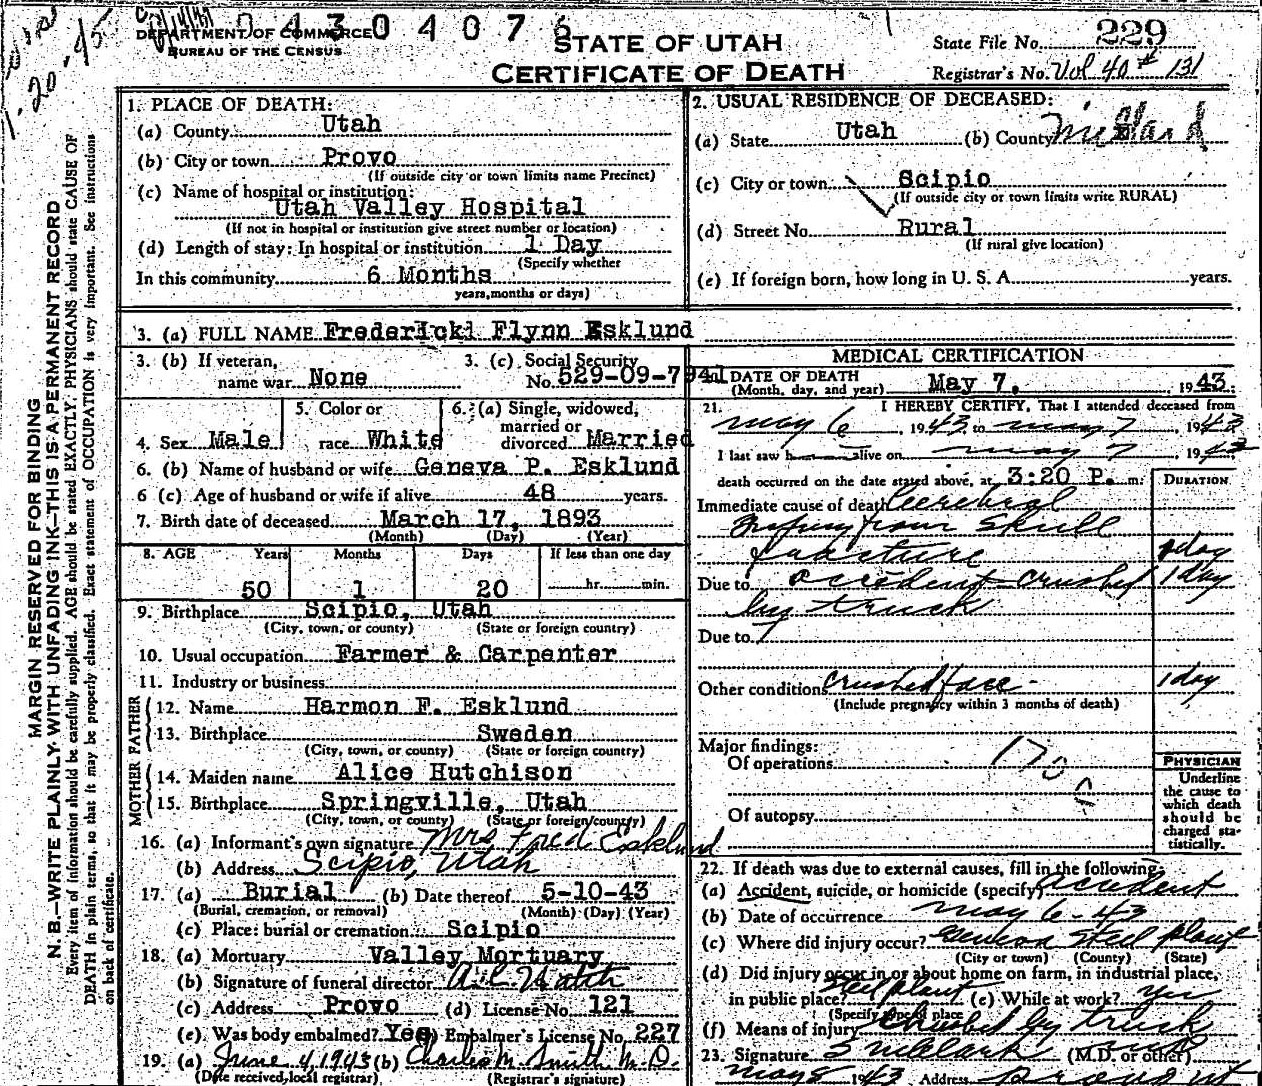 04304076
DEPARTMENT OF COMMERCE
BUREAU OF THE CENSUS
STATE OF UTAH
CERTIFICATE OF DEATH
State File No. 229
Registrar's No. Vol 40 # 131
MARGIN RESERVED FOR BINDING
N. B.—WRITE PLAINLY WITH UNFADING INK—THIS IS A PERMANENT RECORD
Every item of information should be carefully supplied. AGE should be stated EXACTLY. PHYSICIANS should state CAUSE OF
DEATH in plain terms, so that it may be properly classified. Exact statement of OCCUPATION is very important. See instructions
on back of certificate.
1. PLACE OF DEATH:
(a) County Utah
(b) City or town Provo
(If outside city or town limits name Precinct)
(c) Name of hospital or institution:
Utah Valley Hospital
(If not in hospital or institution give street number or location)
(d) Length of stay: In hospital or institution 1 Day
(Specify whether
In this community 6 Months
years, months or days)
2. USUAL RESIDENCE OF DECEASED:
(a) State Utah (b) County Millard
(c) City or town Scipio
(If outside city or town limits write RURAL)
(d) Street No. Rural
(If rural give location)
(e) If foreign born, how long in U. S. A. years.
3. (a) FULL NAME Frederick Flynn Esklund
3. (b) If veteran, name war None
3. (c) Social Security No. 529-09-7941
4. Sex Male
5. Color or race White
6. (a) Single, widowed, married or divorced Married
6. (b) Name of husband or wife Geneva P. Esklund
6 (c) Age of husband or wife if alive 48 years.
7. Birth date of deceased March 17, 1893
(Month) (Day) (Year)
8. AGE Years Months Days If less than one day
50 1 20 hr. min.
9. Birthplace Scipio, Utah
(City, town, or county) (State or foreign country)
10. Usual occupation Farmer & Carpenter
11. Industry or business
FATHER
12. Name Harmon F. Esklund
13. Birthplace Sweden
(City, town, or county) (State or foreign country)
MOTHER
14. Maiden name Alice Hutchison
15. Birthplace Springville, Utah
(City, town, or county) (State or foreign country)
16. (a) Informant's own signature Mrs Fred Esklund
(b) Address Scipio, Utah
17. (a) Burial (b) Date thereof 5-10-43
(Burial, cremation, or removal) (Month) (Day) (Year)
(c) Place: burial or cremation Scipio
18. (a) Mortuary Valley Mortuary
(b) Signature of funeral director
(c) Address Provo (d) License No. 121
(e) Was body embalmed? Yes Embalmer's License No. 227
19. (a) June 4, 1943 (b) Charles M. Smith M.D.
(Date received local registrar) (Registrar's signature)
MEDICAL CERTIFICATION
DATE OF DEATH
(Month, day, and year) May 7, 1943.
21. I HEREBY CERTIFY, That I attended deceased from
May 6, 1943 to May 7, 1943
I last saw h alive on May 7 1943
death occurred on the date stated above, at 3:20 P. m.
DURATION
Immediate cause of death Cerebral
Injury from Skull
fracture 1 day
Due to accident crushed 1 day
by truck
Due to
Other conditions Crushed face 1 day
(Include pregnancy within 3 months of death)
Major findings:
Of operations
Of autopsy
PHYSICIAN
Underline
the cause to
which death
should be
charged sta-
tistically.
22. If death was due to external causes, fill in the following:
(a) Accident, suicide, or homicide (specify) Accident
(b) Date of occurrence May 6-43
(c) Where did injury occur? Geneva Steel plant
(City or town) (County) (State)
(d) Did injury occur in or about home on farm, in industrial place,
in public place? Steel plant (e) While at work? Yes
(Specify type of place
(f) Means of injury Crushed by truck
23. Signature (M.D. or other)
May 8 1943 Address Provo Ut